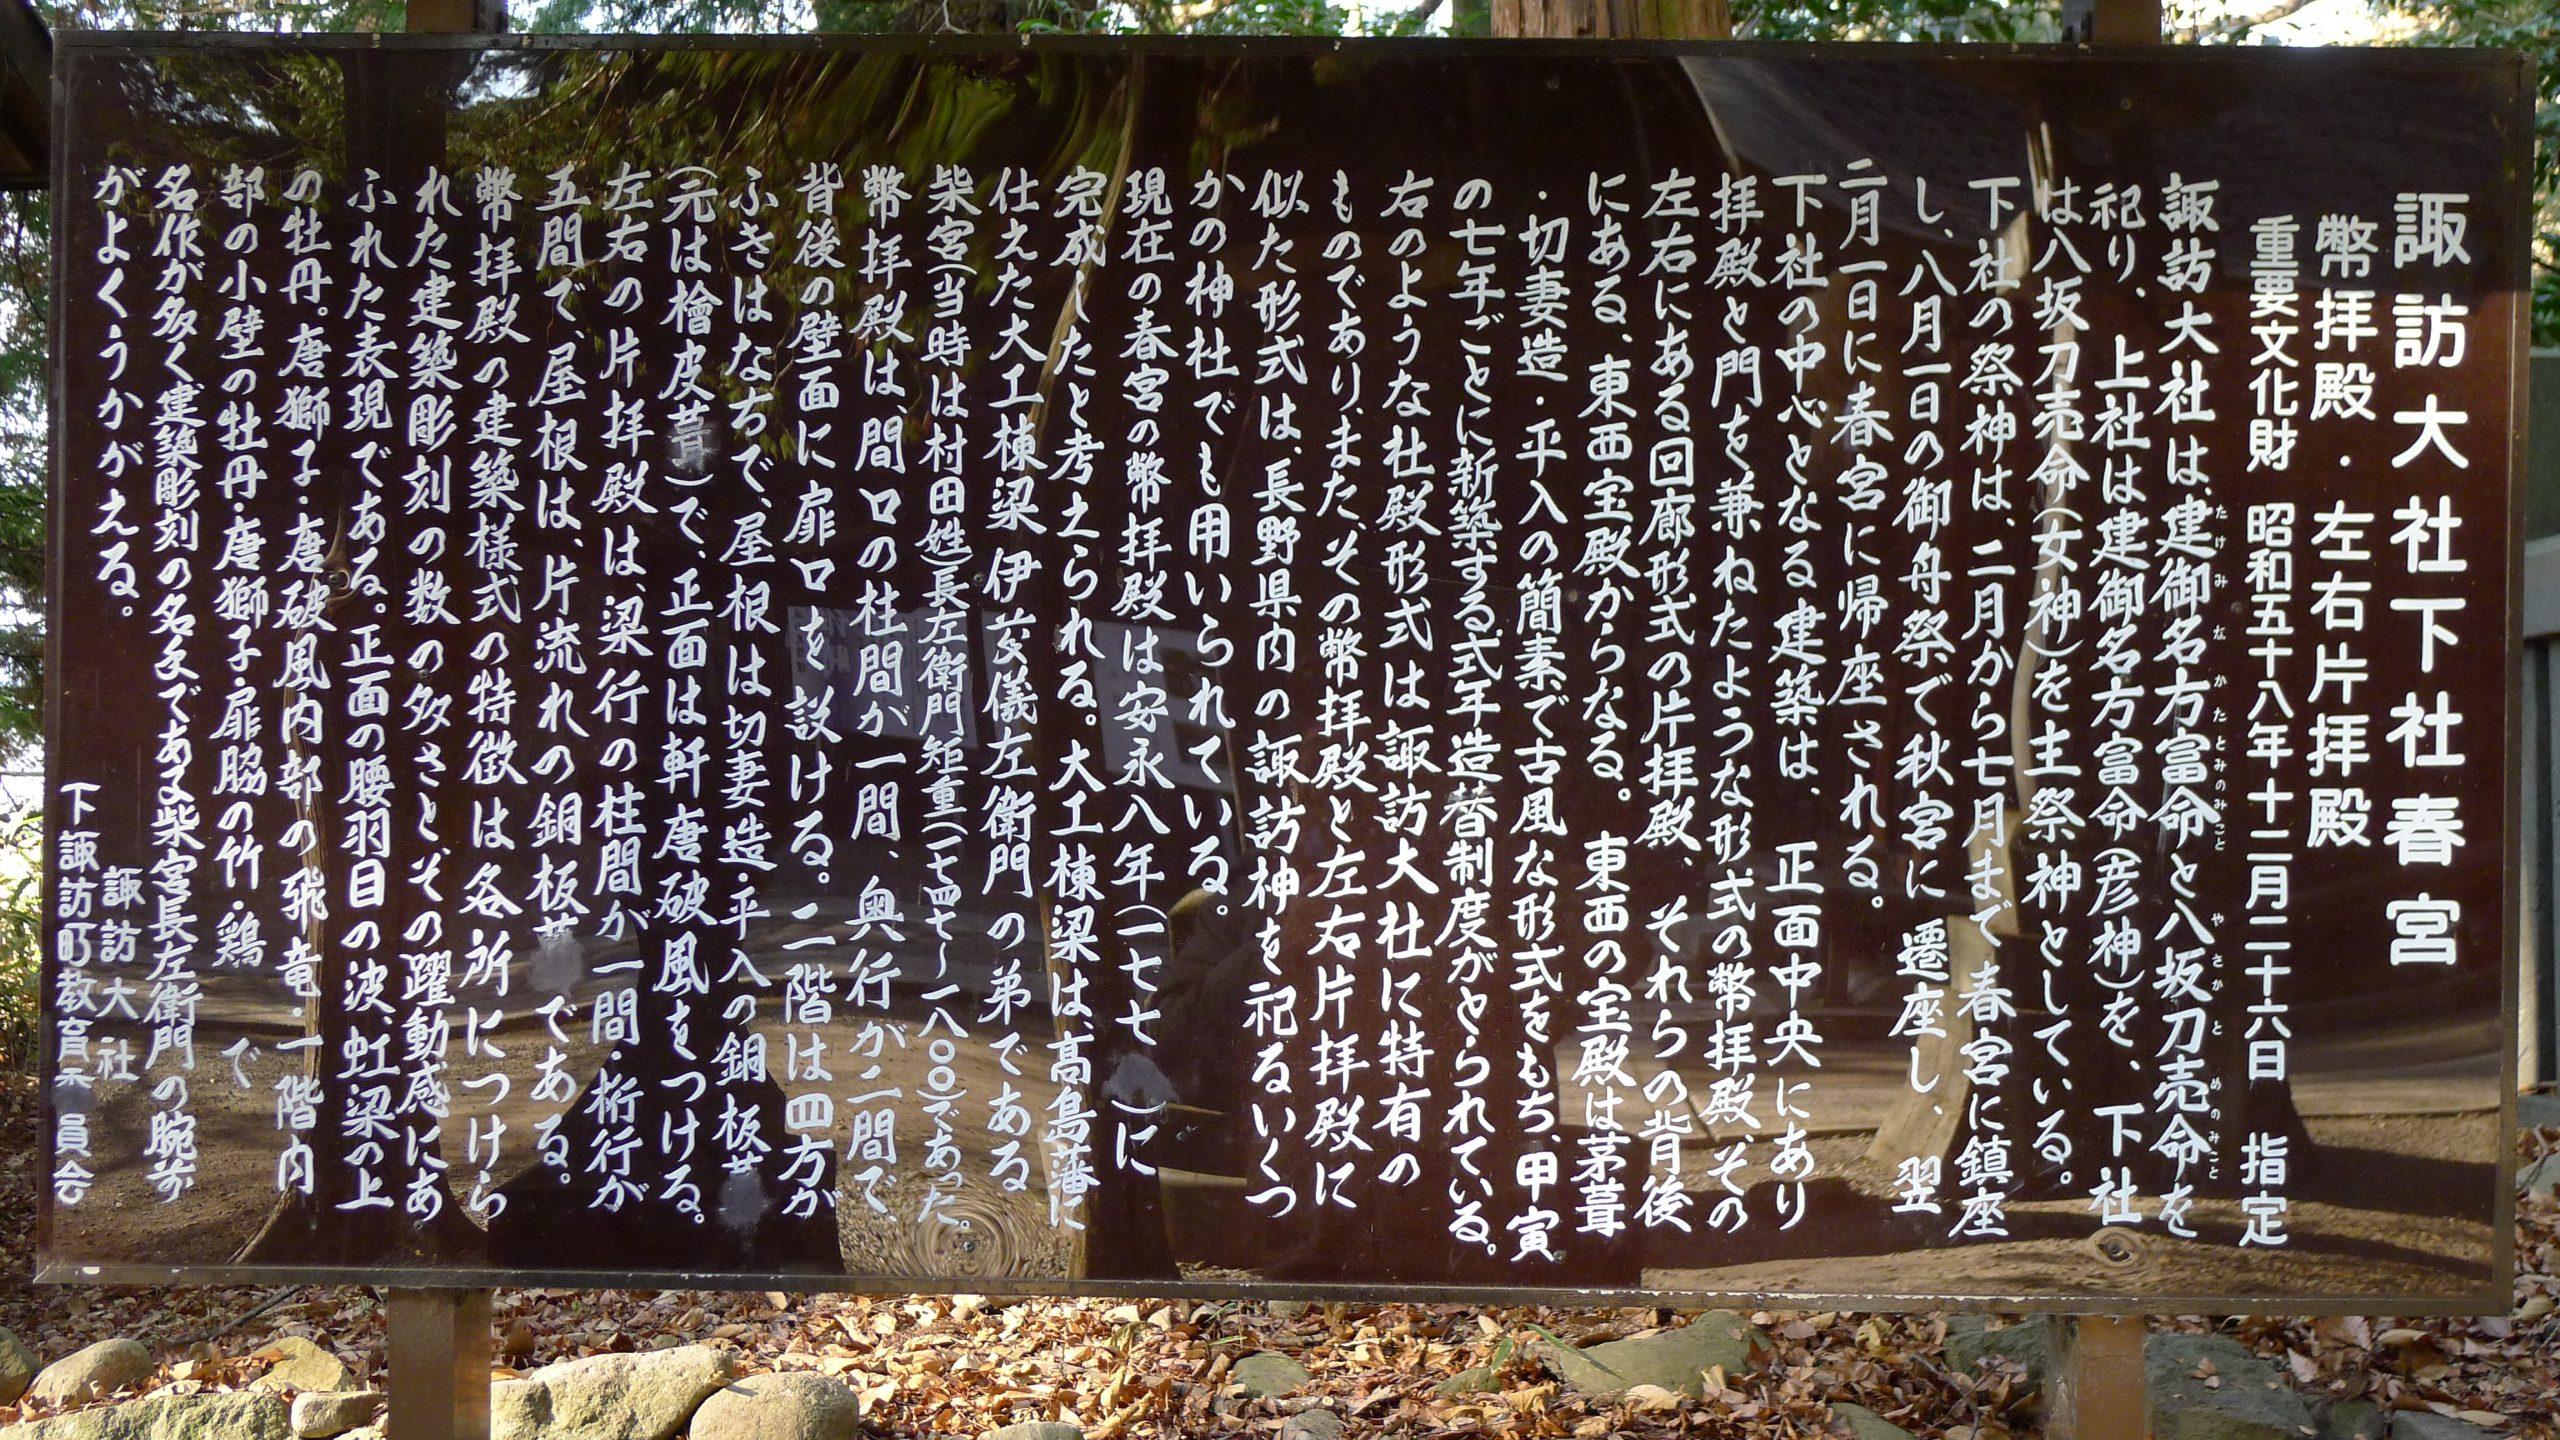 諏訪大社下社春宮
幣拝殿・左右片拝殿
重要文化財 昭和五十八年十二月二十六日 指定
諏訪大社は、建御名方富命と八坂刀売命を
たけみなかたとみのみこと やさかとめのみこと
祀り、上社は建御名方富命(彦神)を、下社
は八坂刀売命(女神)を主祭神としている。
下社の祭神は、二月から七月まで春宮に鎮座
し、八月一日の御舟祭で秋宮に遷座し、翌
二月一日に春宮に帰座される。
下社の中心となる建築は、正面中央にあり
拝殿と門を兼ねたような形式の幣拝殿、その
左右にある回廊形式の片拝殿、それらの背後
にある、東西宝殿からなる。東西の宝殿は茅葺
・切妻造・平入の簡素で古風な形式をもち、甲寅
の七年ごとに新築する式年造替制度がとられている。
右のような社殿形式は諏訪大社に特有の
ものであり、また、その幣拝殿と左右片拝殿に
似た形式は、長野県内の諏訪神を祀るいくつ
かの神社でも用いられている。
現在の春宮の幣拝殿は安永八年(一七七 )に
完成したと考えられる。大工棟梁は、高島藩に
仕えた大工棟梁 伊藤儀左衛門 の弟である
柴宮(当時は村田姓)長左衛門矩重(一七四七〜一八〇〇)であった。
幣拝殿は、間口の柱間が一間、奥行が二間で、
背後の壁面に扉口を設ける。二階は四方が
ふきはなちで、屋根は切妻造・平入の銅板葺
(元は檜皮葺)で、正面は軒唐破風をつける。
左右の片拝殿は、梁行の柱間が一間・桁行が
五間で、屋根は、片流れの銅板葺 である。
幣拝殿の建築様式の特徴は各所につけら
れた建築彫刻の数の多さと、その躍動感にあ
ふれた表現である。正面の腰羽目の波、虹梁の上
の牡丹。唐獅子・唐破風内部の飛竜・一階内
部の小壁の牡丹・唐獅子・扉脇の竹・鶏 で
名作が多く建築彫刻の名手である柴宮長左衛門の腕前
がよくうかがえる。
諏訪大社
下諏訪町教育委員会